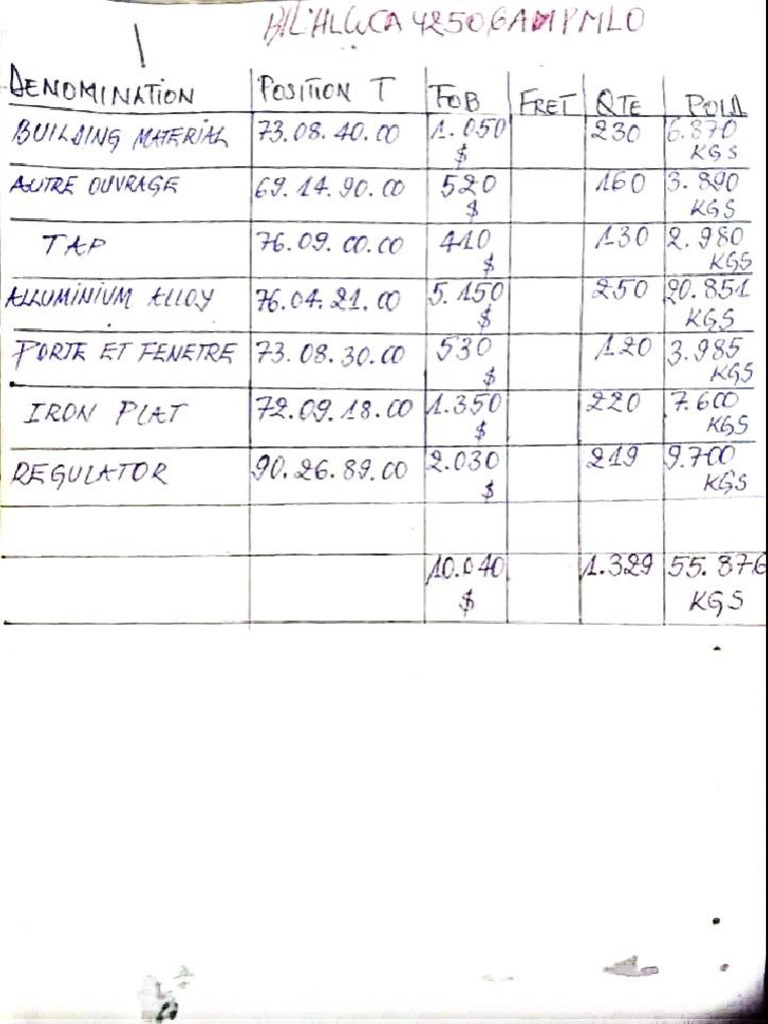 DENOMINATION POSITION T FOB FRET QTE POID
BUILDING MATERIAL 73.08.40.00 1.050 $ 230 6.870 KGS
AUTRE OUVRAGE 69.14.90.00 520 $ 160 3.890 KGS
TAP 76.09.00.00 410 $ 130 2.980 KGS
ALLUMINIUM ALLOY 76.04.21.00 5.150 $ 250 20.851 KGS
PORTE ET FENETRE 73.08.30.00 530 $ 120 3.985 KGS
IRON PLAT 72.09.18.00 1.350 $ 220 7.600 KGS
REGULATOR 90.26.89.00 2.030 $ 219 9.700 KGS
10.040 $ 1.329 55.876 KGS